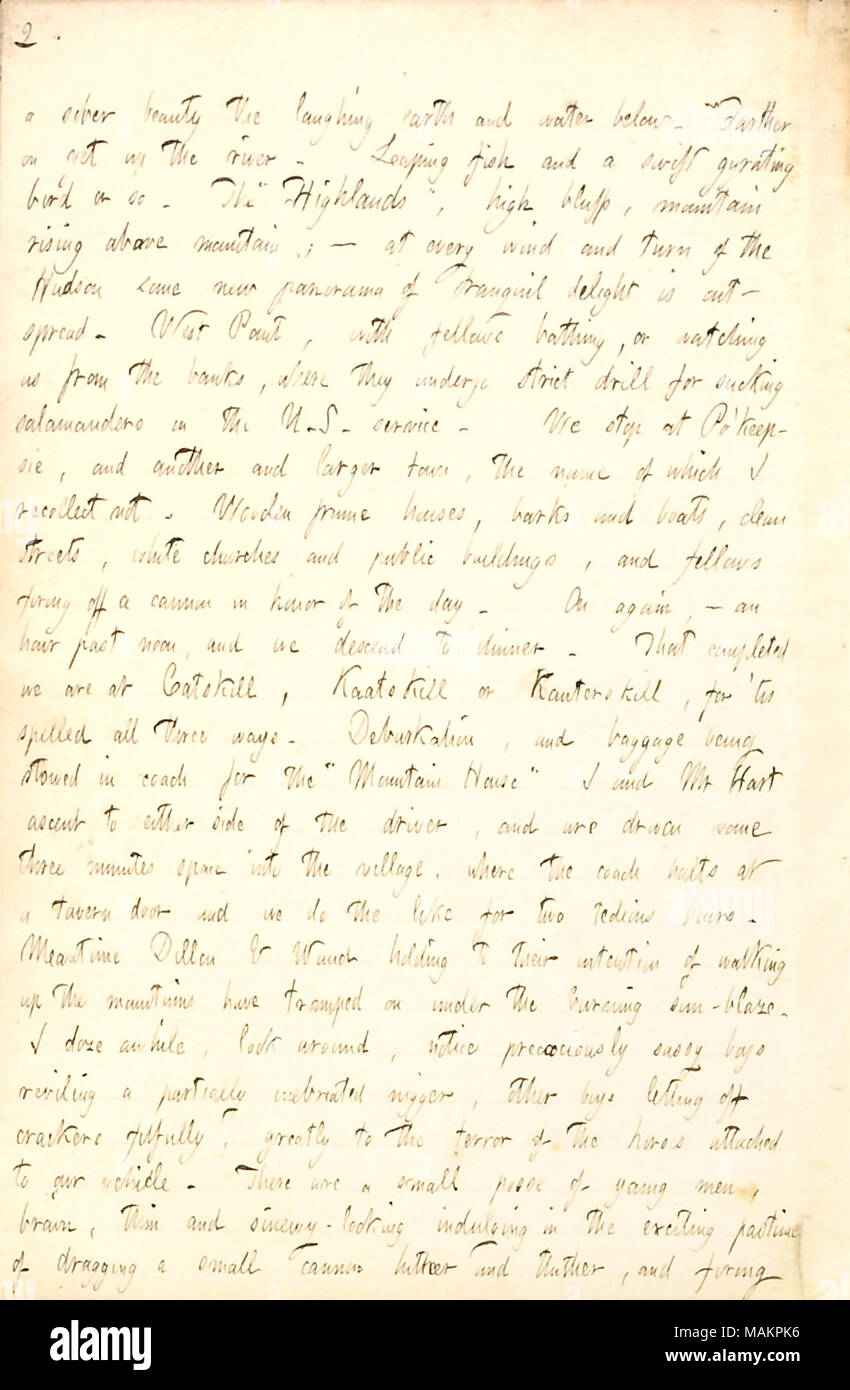 2.
a sober beauty the laughing earth and water below. Farther
on yet up the river. Leaping fish and a swift gyrating
bird or so. The "Highlands", high bluffs, mountain
rising above mountain; — at every wind and turn of the
Hudson some new panorama of tranquil delight is out-
spread. West Point, with fellows bathing, or watching
us from the banks, where they undergo strict drill for sucking
salamanders in the U.S. service. We stop at Po'keep-
sie, and another and larger town, the name of which I
recollect not. Wooden frame houses, barks and boats, clean
streets, white churches and public buildings, and fellows
firing off a cannon in honor of the day. On again, — an
hour past noon, and we descend to dinner. That completed
we are at Catskill, Kaatskill or Kauterskill, for 'tis
spelled all three ways. Debarkation, and baggage being
stowed in coach for the "Mountain House" I and Mr Hart
ascent to either side of the driver, and are driven some
three minutes space into the village, where the coach halts at
a tavern door and we do the like for two tedious hours.
Meantime Dillon & Waud holding to their intention of walking
up the mountains have tramped on under the burning sun-blaze.
I doze awhile, look around, notice precociously sassy boys
reviling a partially inebriated nigger, other boys letting off
crackers fitfully, greatly to the terror of the horses attached
to our vehicle. There are a small posse of young men,
brawn, thin and sinewy-looking indulging in the exciting pastime
of dragging a small cannon hither and thither, and firing
alamy
Image ID: MAKPK6
www.alamy.com